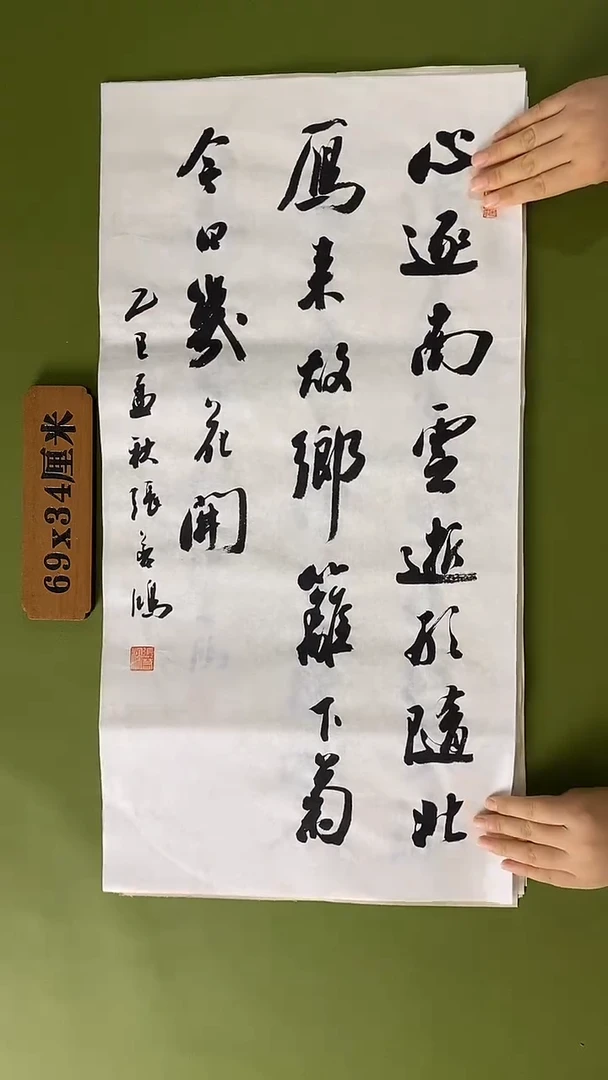 心逐南雲逝形隨北
鴈來故鄉籬下菊
今日幾花開
乙巳孟秋張善鴻
69x34厘米